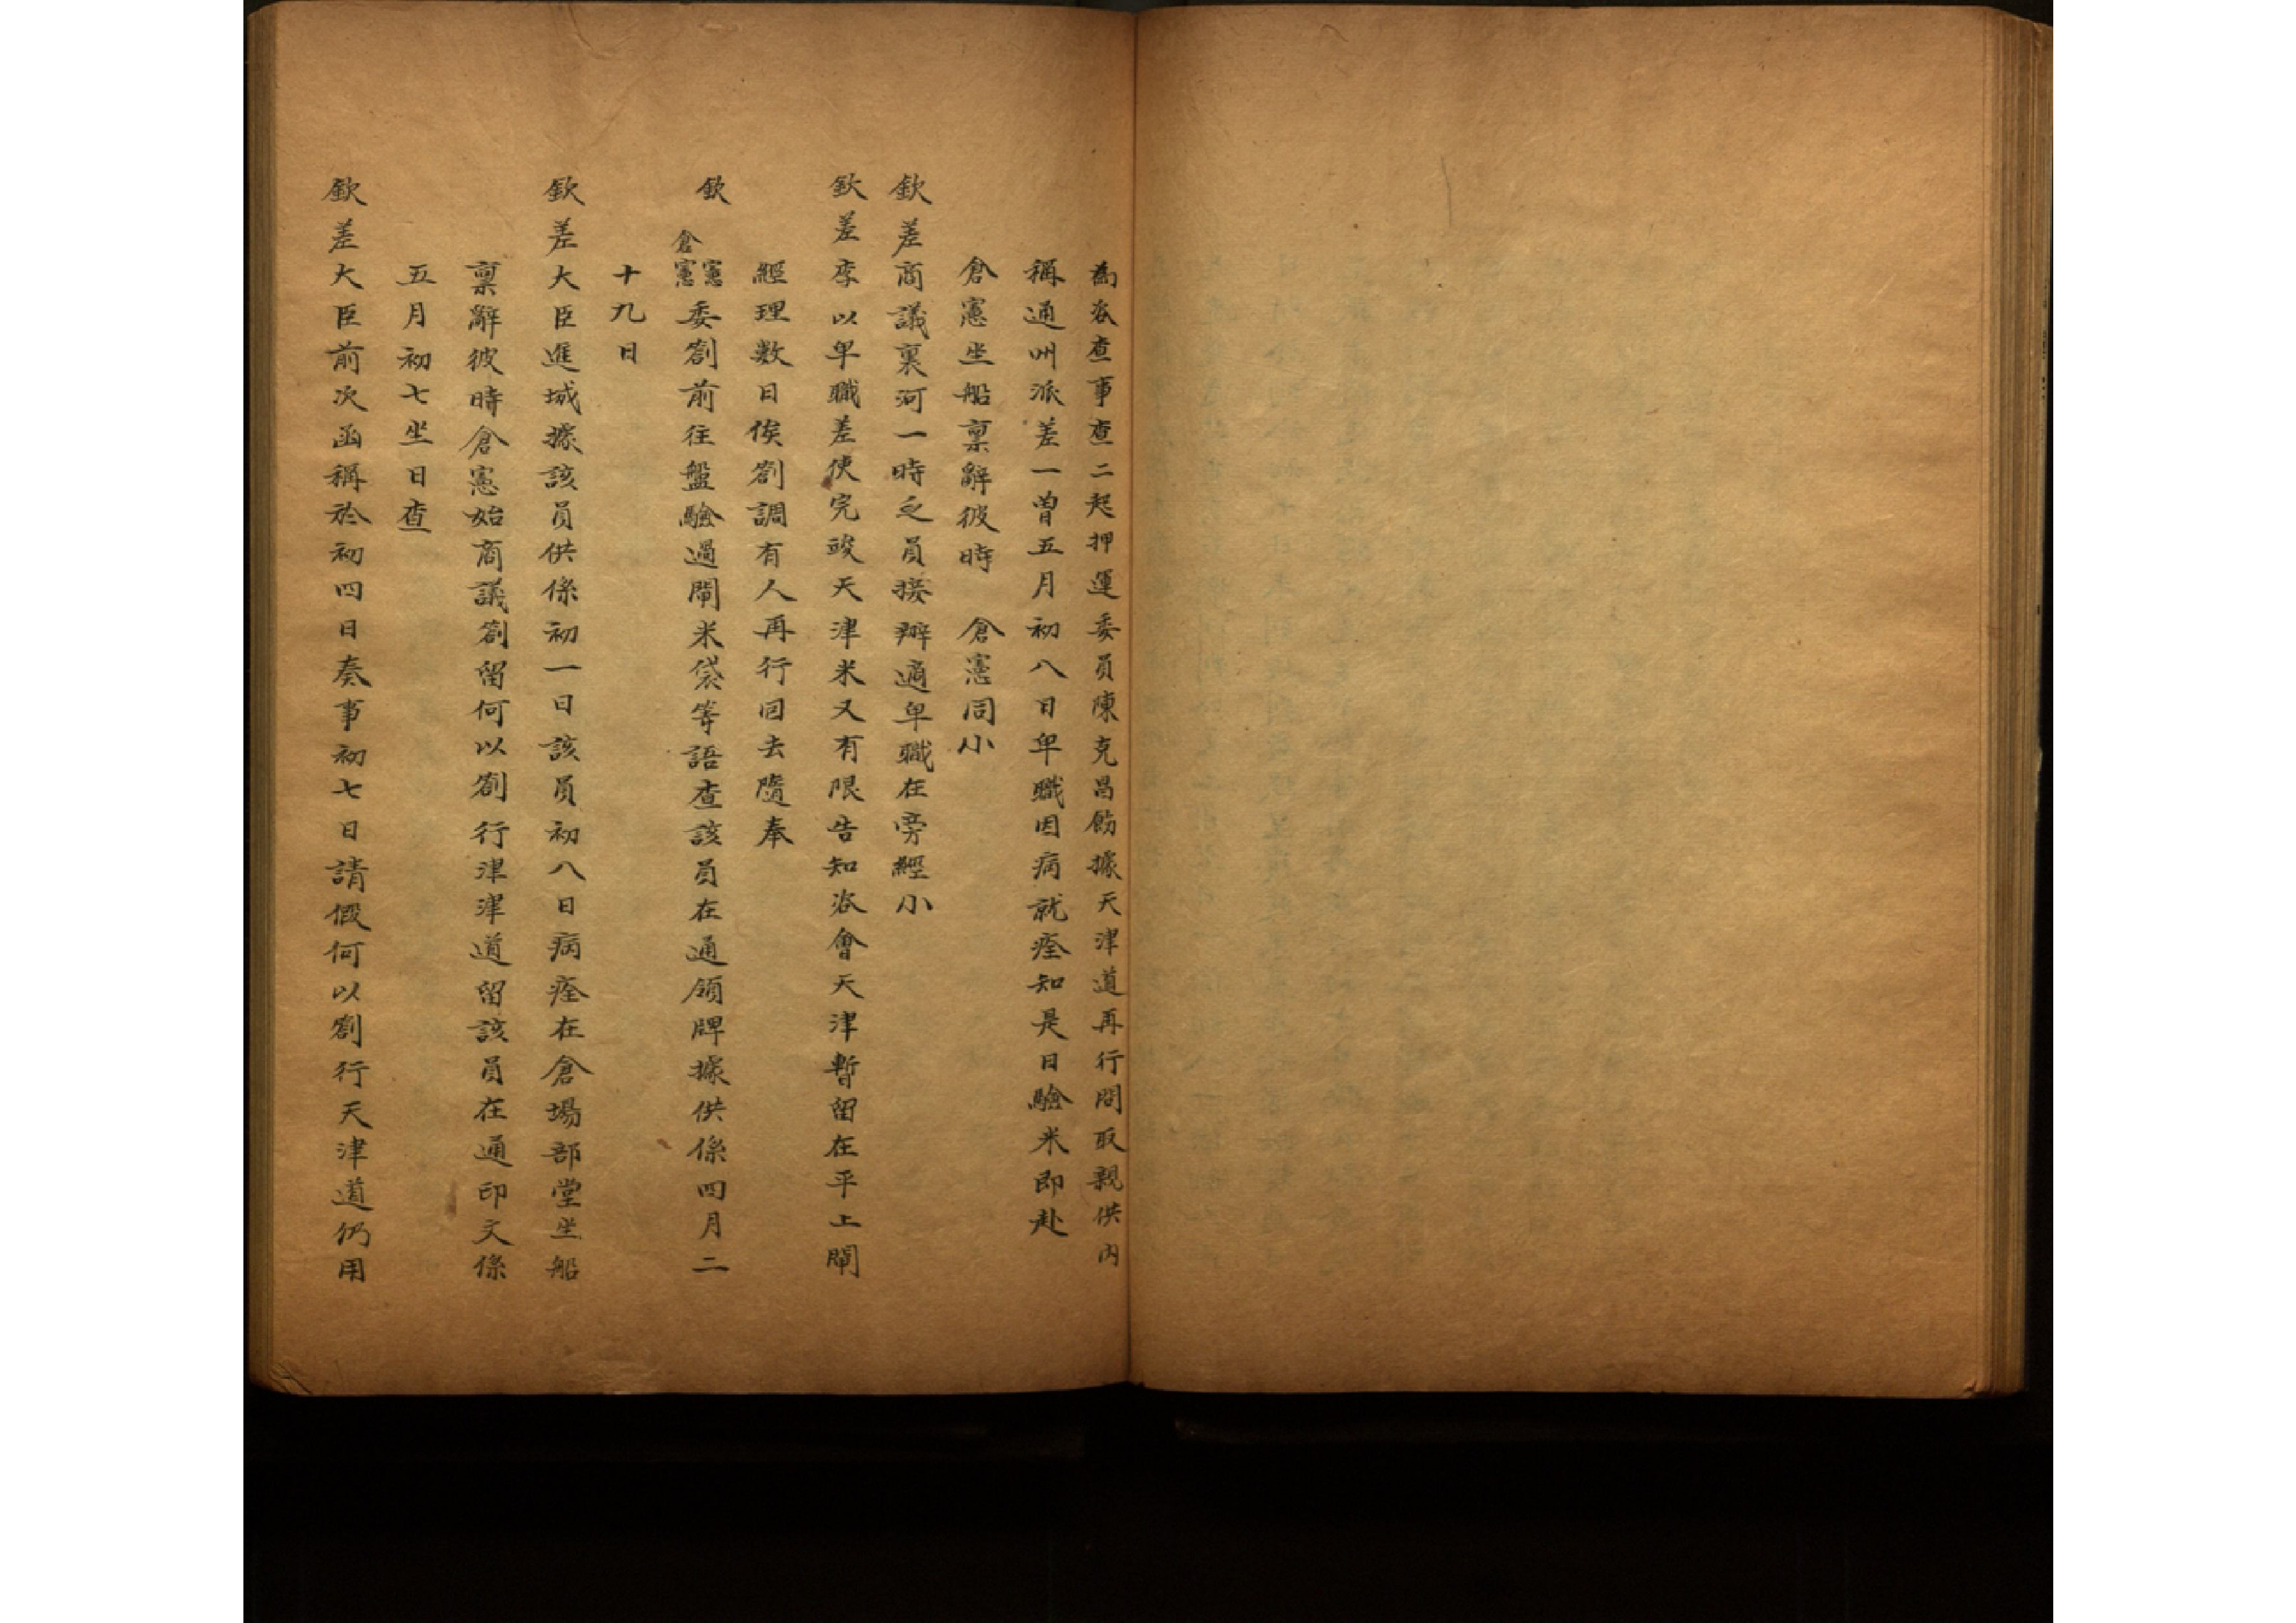 為咨查事查二起押運委員陳克昌飭據天津道再行問取親供內
稱通州派差一曾五月初八日卑職因病就痊知是日驗米即赴
倉憲坐船稟辭彼時　倉憲同小
欽差商議裏河一時乏員接辦適卑職在旁經小
欽差李以卑職差使完竣天津米又有限告知咨會天津暫留在平上閘
經理數日俟劄調有人再行回去隨奉
欽憲倉憲委劄前往盤驗過閘米袋等語查該員在通領牌據供係四月二
十九日
欽差大臣進城據該員供係初一日該員初八日病痊在倉場部堂坐船
稟辭彼時倉憲始商議劄留何以劄行津津道留該員在通印文係
五月初七坐日查
欽差大臣前次函稱於初四日奏事初七日請假何以劄行天津道仍用